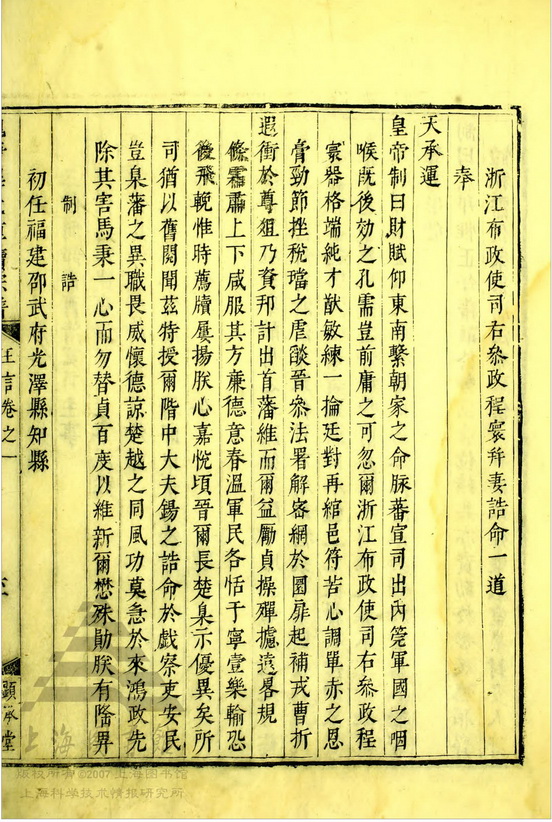 浙江布政使司右參政程寰并妻誥命一道
奉
天承運
皇帝制曰財賦仰東南繫朝家之命脉蕃宣司出內筦軍國之咽
喉既後効之孔需豈前庸之可忽爾浙江布政使司右參政程
寰器格端純才猷敏練一掄廷對再綰邑符苦心調單赤之恩
膏勁節挫稅璫之虐燄晉參法署解密網於圜扉起補戎曹折
遐衝於尊俎乃資邦計出首藩維而爾益勵貞操殫攄遠畧規
條霜肅上下咸服其方亷德意春溫軍民各恬于寧壹樂輸恐
後飛輓惟時薦牘屢揚朕心嘉悅頃晉爾長楚臬示優異矣所
司猶以舊閥聞茲特授爾階中大夫錫之誥命於戲察吏安民
豈臬藩之異職畏威懷德諒楚越之同風功莫急於來鴻政先
除其害馬秉一心而勿替貞百度以維新爾懋殊勛朕有隆畀
制誥
初任福建邵武府光澤縣知縣
王言卷之一
顯承堂
上海圖書館
版权所有 ©2007 上海图书馆
上海科学技术情报研究所